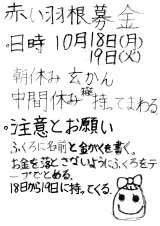 赤い羽根募金
。日時 10月18日(月)
19日(火)
朝休み 玄かん
中間休み 持ってまわる
。注意とお願い
ふくろに名前と金がくを書く。
お金を落とさないようにふくろをテ
ープでとめる。
18日から19日に持ってくる。